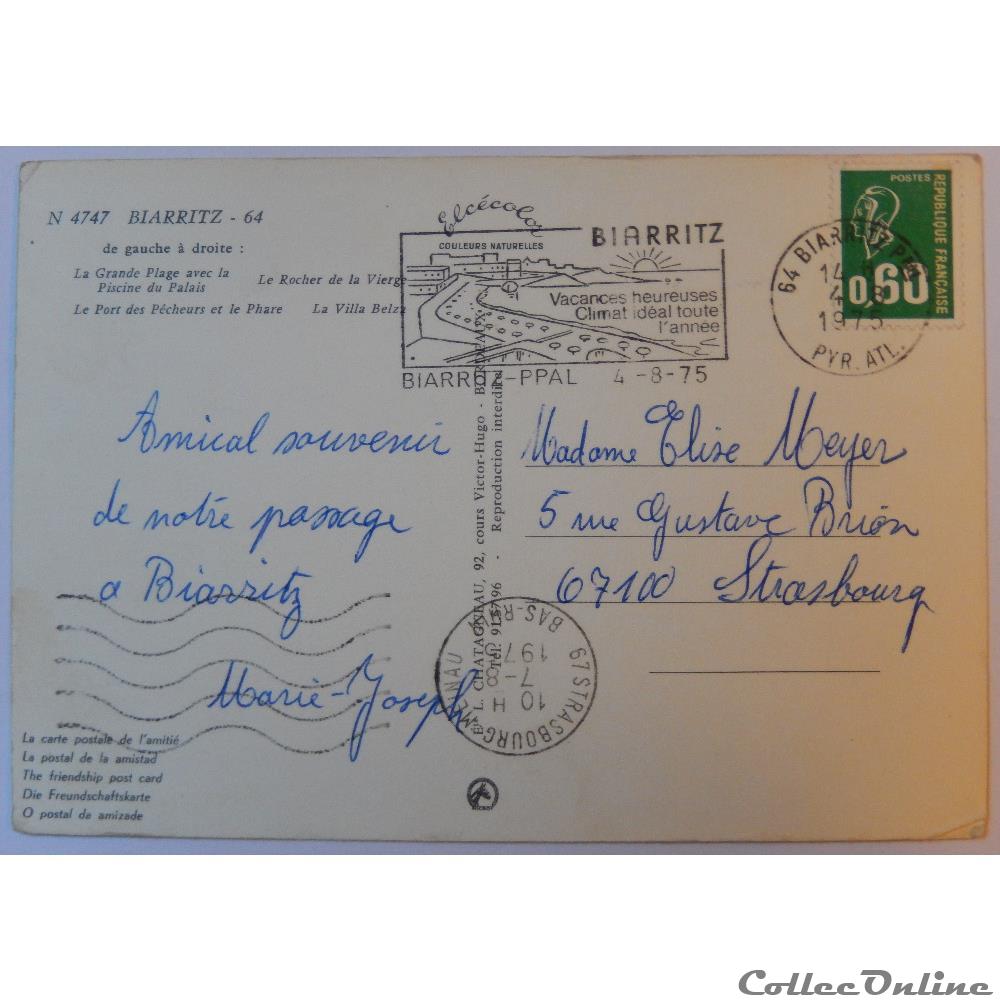 N 4747 BIARRITZ - 64
de gauche à droite :
La Grande Plage avec la
Piscine du Palais
Le Rocher de la Vierge
Le Port des Pécheurs et le Phare
La Villa Belza
Elcécolor
COULEURS NATURELLES
BIARRITZ
Vacances heureuses
Climat idéal toute
l'année
BIARRITZ-PPAL 4-8-75
64 BIARRITZ PPAL
14
4 8
1975
PYR. ATL.
POSTES
RÉPUBLIQUE FRANÇAISE
0,60
Amical souvenir
de notre passage
a Biarritz
Marie-Joseph
Madame Elise Meyer
5 rue Gustave Brion
67100 Strasbourg
L. CHATAGNEAU, 92, cours Victor-Hugo - BORDEAUX
Tél. 91.57.96 - Reproduction interdite
67 STRASBOURG-MEINAU
10 H
7-8
197
BAS-RHIN
La carte postale de l'amitié
La postal de la amistad
The friendship post card
Die Freundschaftskarte
O postal da amizade
CollecOnline